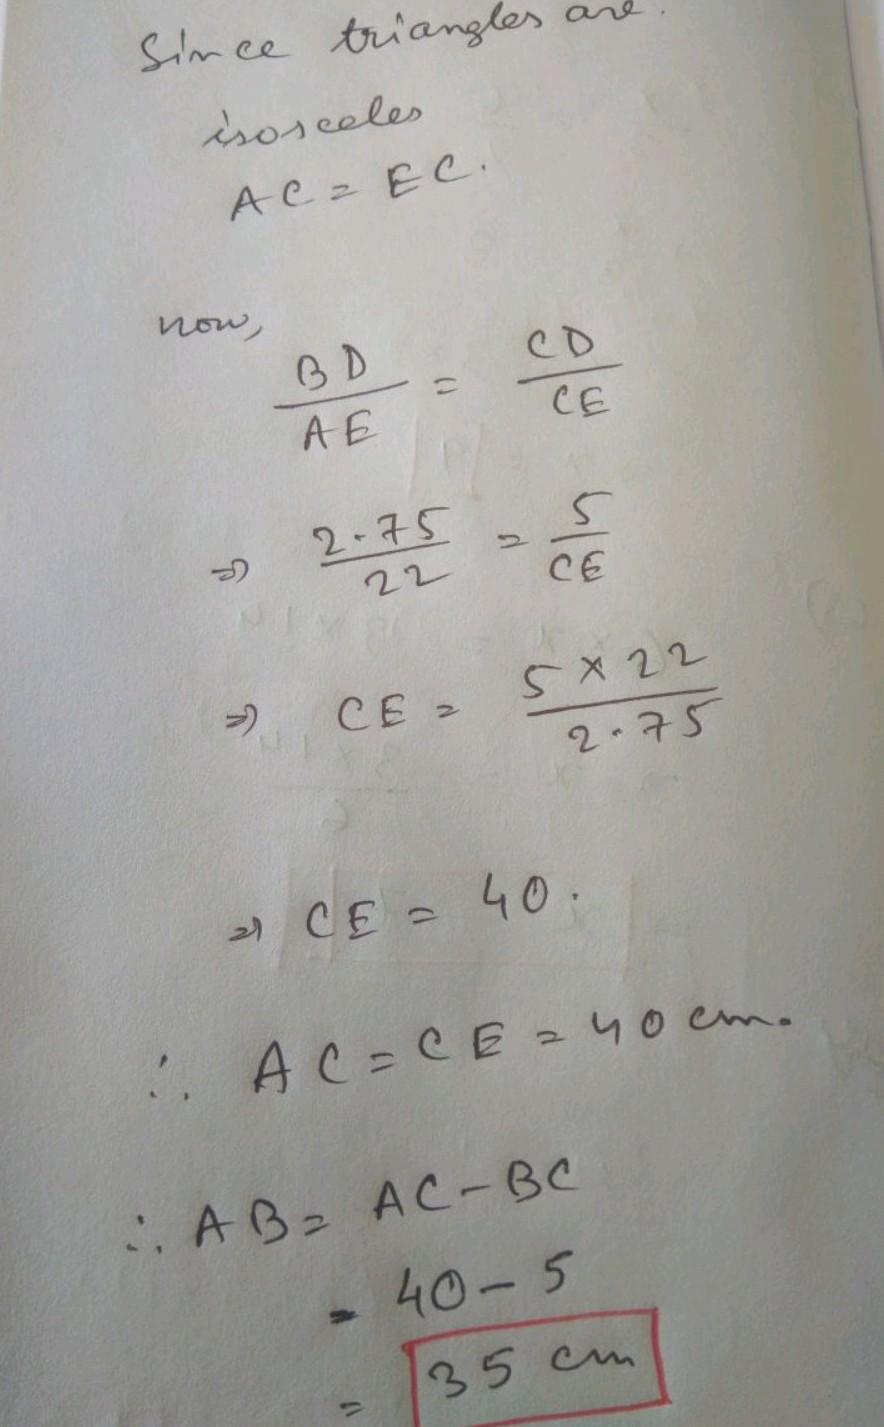 Since triangles are.
isosceles
AC = EC.
now,
BD/AE = CD/CE
⇒ 2.75/22 = 5/CE
⇒ CE = 5 × 22/2.75
⇒ CE = 40.
∴ AC = CE = 40 cm.
∴ AB = AC - BC
= 40 - 5
= 35 cm